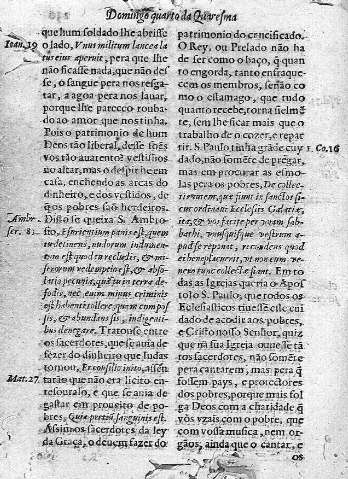 Domingo quarto da Quaresma
que hum soldado lhe abrisse
Ioan. 19 o lado, Vnus militum lancea la
tus eius aperuit, pera que lhe
não ficasse nada, que não des-
se, o sangue pera nos resga-
tar, a agoa pera nos lauar,
porque lhe parecco rouba-
do ao amor que nos tinha.
Pois o patrimonio de hum
Deos tão liberal, desse soes
vos tão auarento? vestisios
no altar, mas o despis he em
casa, enchendo as arcas do
dinheiro, e dos vestidos, de
que os pobres saõ herdeiros.
Ambr. Disso se queixa S. Ambro
ser. 81. sio, Esurientium panis est, quem
tu detines, nudorum indumen-
tum est quod tu recludis, & mi-
serorum redemptio est, & abso-
lutio pecunia, quã tu in terra de-
fodis, nec enim minus criminis
est habenti tollere, quam cum pos-
sis, & abundans sis, indigenti-
bus denegare. Tratouse entre
os sacerdotes, que se auia de
fazer do dinheiro que Iudas
tomou, Et consilio inito, assen
Mat. 27 tarão que não era licito en-
tesouralo, e que se auia de
gastar em proueito de po-
bres, Quia pretiũ sanguinis est.
Assi nos sacerdotes da ley
da Graça, o deuem fazer do
patrimonio do crucificado.
O Rey, ou Prelado não ha
de ser como o baço, q̃ quan
to engorda, tanto enfraque-
cem os membros, senão co
mo o estamago, que tudo
quanto recebe, torna fielmẽ
te, sem lhe ficar mais que o
trabalho de o cozer, e repar
tir. S. Paulo tinha grãde cuy 1. Co. 16
dado, não sómente de prégar,
mas em procurar as esmo-
las pera os pobres, De collec-
tis autem, quæ fiunt in sanctos si-
cut ordinaui Ecclesiis Galatiæ,
ita, & vos facite per vnam sab-
bathi, vnusquisque vestrum a-
pud se reponat, recondens quod
ei bene placuerit, vt non cum ve-
nero tunc collectæ fiant. Em to
das as Igrejas queria o Apos
tolo S. Paulo, que todos os
Ecclesiasticos tiuessẽ este cui
dado de acodir aos pobres,
e Cristo nosso Senhor, quiz
que na sua Igreja ouuesse tã
tos sacerdotes, não sómẽte
pera cantarem, mas pera q̃
fossem pays, e protectores
dos pobres, porque mais fol
ga Deos com a charidade q̃
vòs vzais com o pobre, que
com vossa musica, nem or-
gãos, ainda que o cantar, e
os